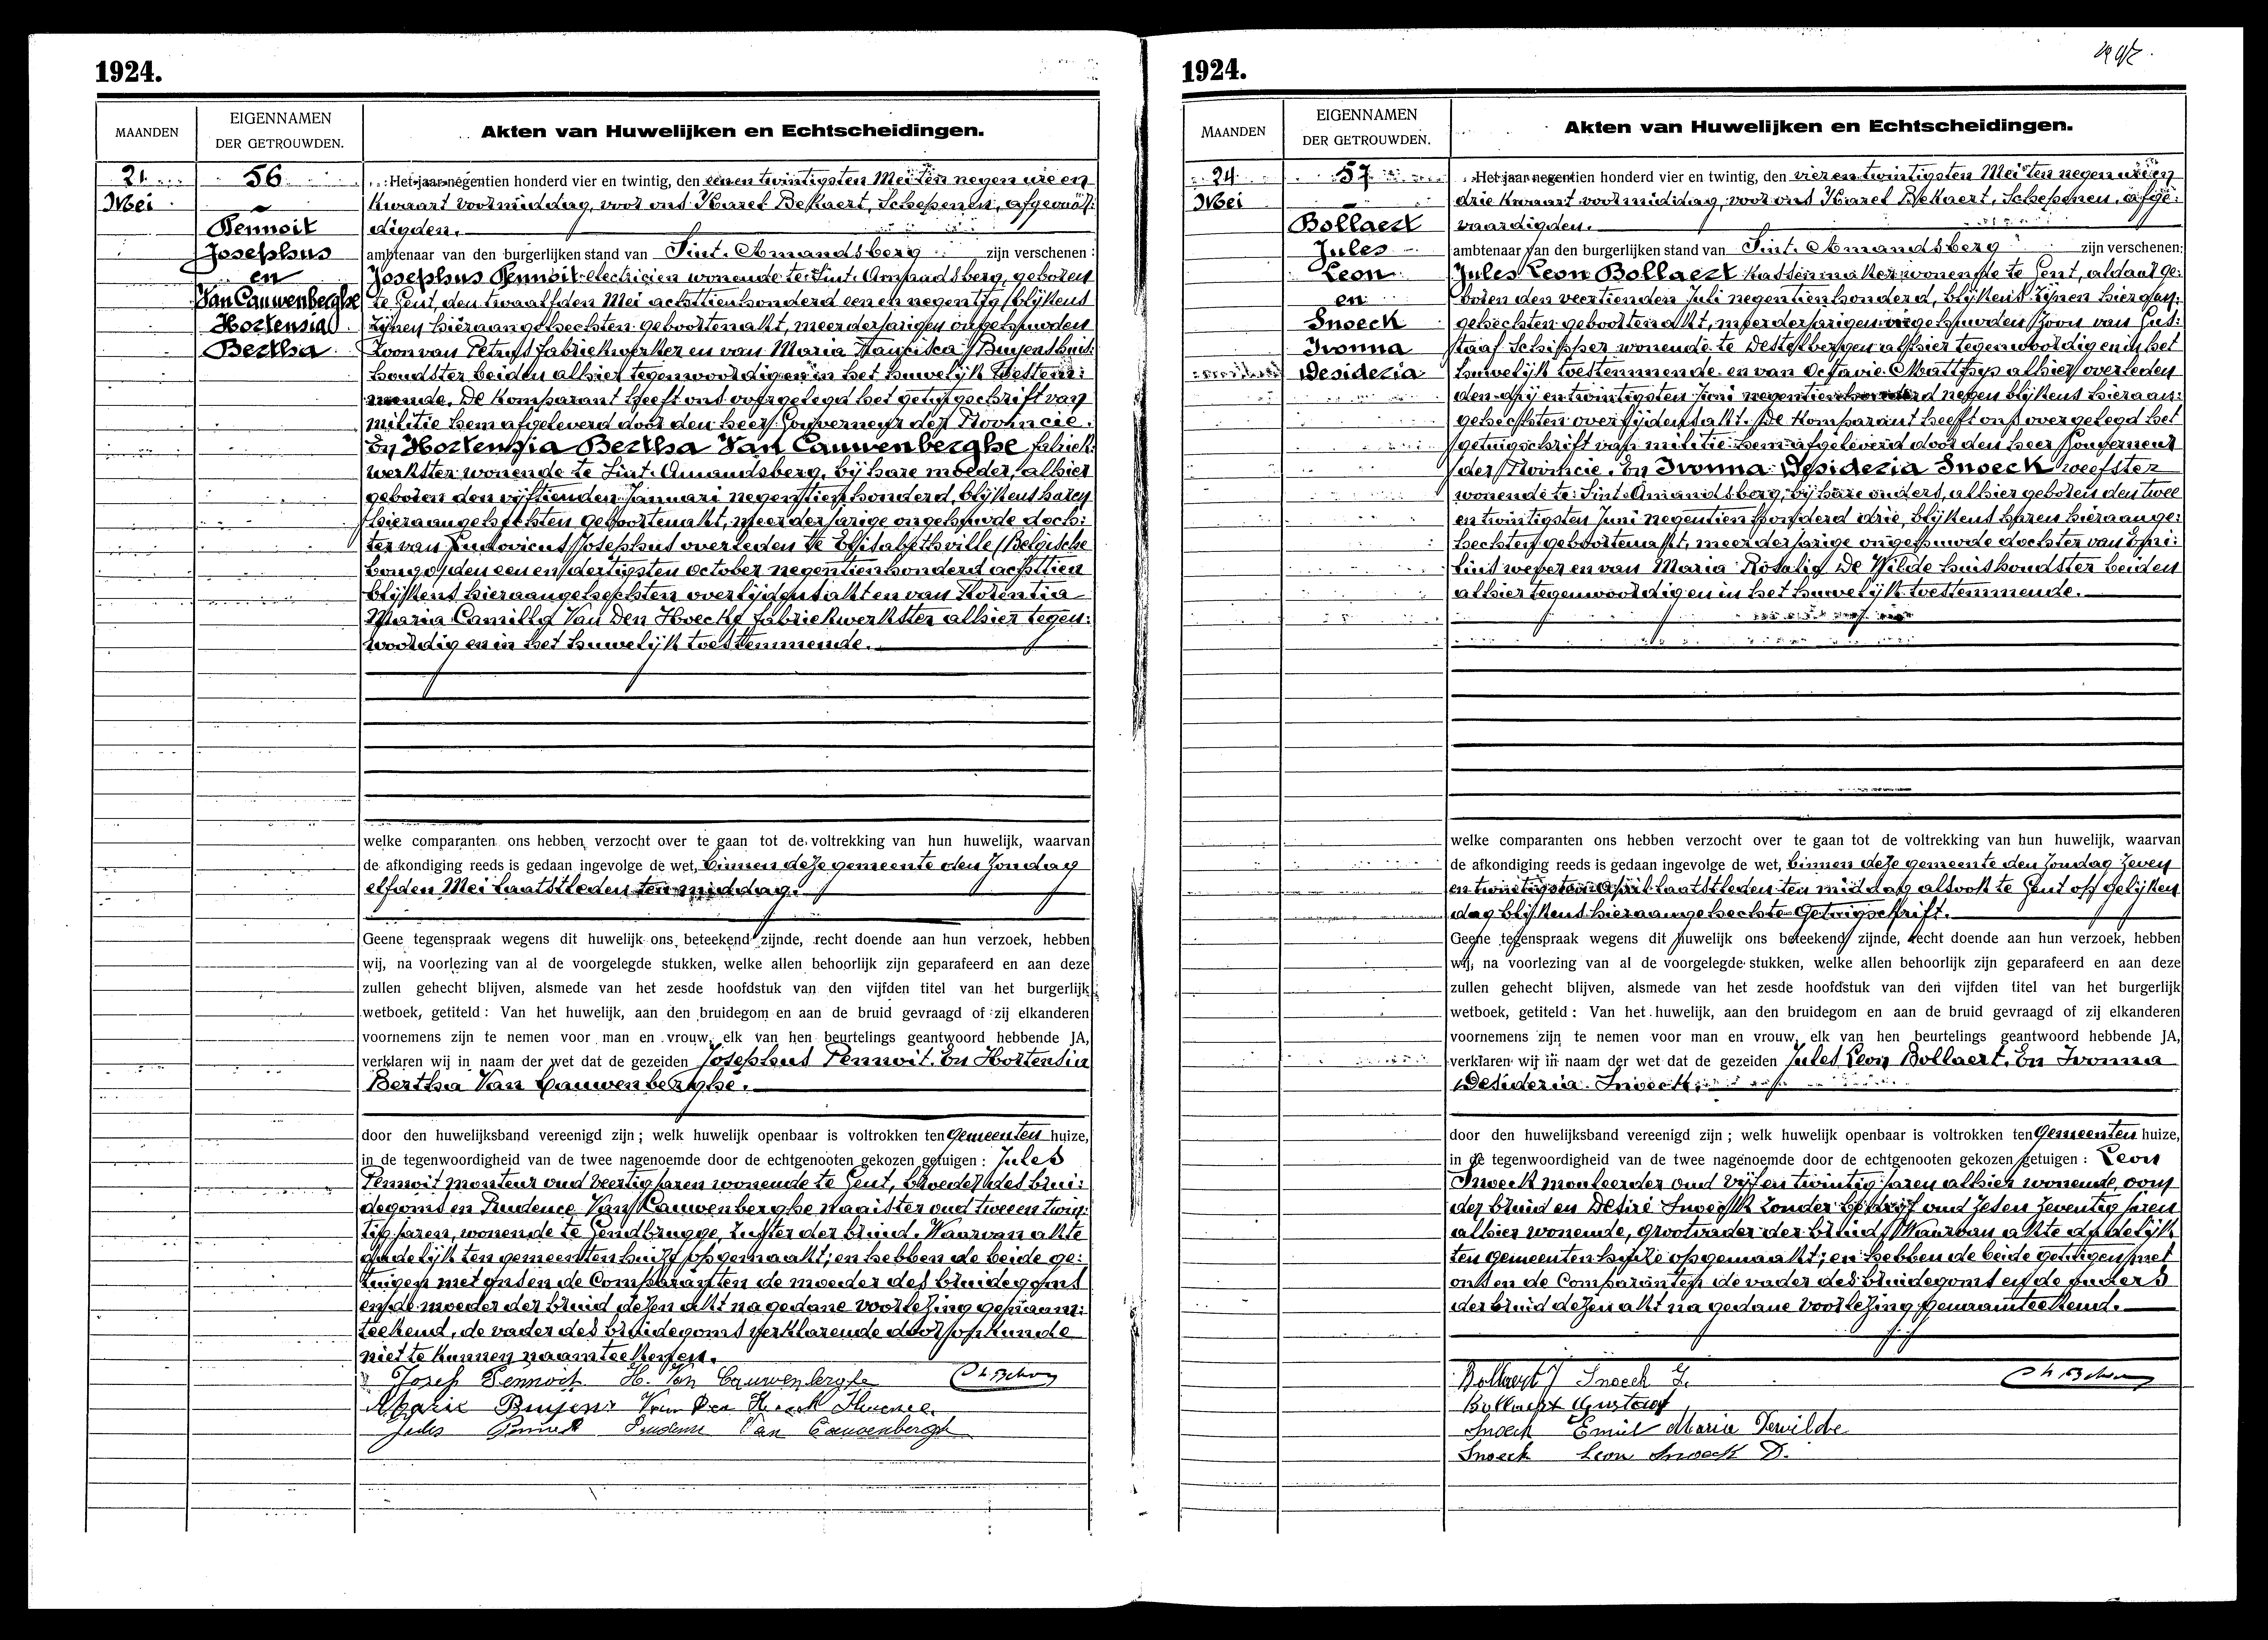 1924.
MAANDEN
EIGENNAMEN
DER GETROUWDEN.
Akten van Huwelijken en Echtscheidingen.
21
Mei
56
Pennoit
Josephus
en
Van Cauwenberghe
Hortensia
Bertha
Het jaar negentien honderd vier en twintig, den eenen twintigsten Mei ten negen ure en
kwaart voormiddag, voor ons Karel Bekaert, Schepenen, afgevaar:
digden.
ambtenaar van den burgerlijken stand van Sint-Amandsberg zijn verschenen:
Josephus Pennoit electricien wonende te Sint-Amandsberg, geboren
te Gent, den twaalfden Mei achttienhonderd een en negentig, blijkens
zijnen hieraangehechten geboortenakt, meerderjarigen ongehuwden
Zoon van Petrus fabriekwerker en van Maria Francisca Buyens huis:
houdster beiden alhier tegenwoordig en in het huwelijk toestem:
mende. De Komparant heeft ons overgelegd het getuigschrift van
militie hem afgeleverd door den heer Gouverneur der Provincie.
En Hortensia Bertha Van Cauwenberghe fabriek:
werkster wonende te Sint-Amandsberg, bij hare moeder, alhier
geboren den vijftienden Januari negentien honderd, blijkens haren
hieraangehechten geboortenakt, meerderjarige ongehuwde doch:
ter van Ludovicus Josephus overleden te Elisabethville (Belgische
Congo) den een en dertigsten October negentienhonderd achttien
blijkens hieraangehechten overlijdensakt en van Florentia
Maria Camilla Van Den Hoecke fabriekwerkster alhier tegen:
woordig en in het huwelijk toestemmende.
welke comparanten ons hebben verzocht over te gaan tot de voltrekking van hun huwelijk, waarvan
de afkondiging reeds is gedaan ingevolge de wet, binnen deze gemeente den Zondag
elfden Mei laatstleden ten middag.
Geene tegenspraak wegens dit huwelijk ons beteekend zijnde, recht doende aan hun verzoek, hebben
wij, na voorlezing van al de voorgelegde stukken, welke allen behoorlijk zijn geparafeerd en aan deze
zullen gehecht blijven, alsmede van het zesde hoofdstuk van den vijfden titel van het burgerlijk
wetboek, getiteld: Van het huwelijk, aan den bruidegom en aan de bruid gevraagd of zij elkanderen
voornemens zijn te nemen voor man en vrouw, elk van hen beurtelings geantwoord hebbende JA,
verklaren wij in naam der wet dat de gezeiden Josephus Pennoit. En Hortensia
Bertha Van Cauwenberghe.
door den huwelijksband vereenigd zijn; welk huwelijk openbaar is voltrokken ten Gemeenten huize,
in de tegenwoordigheid van de twee nagenoemde door de echtgenooten gekozen getuigen: Jules
Pennoit monteur oud veertig jaren wonende te Gent, broeder des brui:
degoms en Prudence Van Cauwenberghe naaister oud twee en twin:
tig jaren, wonende te Gendbrugge, zuster der bruid. Waarvan akte
dadelijk ten gemeentenhuize opgemaakt; en hebben de beide ge:
tuigen met ons en de Comparanten de moeder des bruidegoms
en de moeder der bruid dezen akt na gedane voorlezing genaam:
teekend, de vader des bruidegoms verklarende door onkunde
niet te kunnen naamteekenen.
Josef Pennoit H. Van Cauwenberghe
Marie Buyens Van Den
Jules Pennoit Prudence Van Cauwenberghe
1924.
MAANDEN
EIGENNAMEN
DER GETROUWDEN.
Akten van Huwelijken en Echtscheidingen.
24
Mei
57
Bollaert
Jules
Leon
en
Snoeck
Ivonna
Desideria
Het jaar negentien honderd vier en twintig, den vier en twintigsten Mei ten negen ure en
drie kwaart voormiddag, voor ons Karel Bekaert, Schepenen, afge:
vaardigden.
ambtenaar van den burgerlijken stand van Sint-Amandsberg zijn verschenen:
Jules Leon Bollaert kassenmaker wonende te Gent, aldaar ge:
boren den veertienden Juli negentienhonderd, blijkens zijnen hieraan:
gehechten geboortenakt, meerderjarigen ongehuwden Zoon van Gus:
taaf Schipper wonende te Destelbergen alhier tegenwoordig en in het
huwelijk toestemmende en van Octavie Matthys alhier overleden
den drij en twintigsten Juni negentienhonderd negen blijkens hieraan:
gehechten overlijdensakt. De Komparant heeft ons overgelegd het
getuigschrift van militie hem afgeleverd door den heer Gouverneur
der Provincie. En Ivonna Desideria Snoeck weefster
wonende te Sint-Amandsberg, bij hare ouders, alhier geboren den twee
en twintigsten Juni negentien honderd drie, blijkens haren hieraange:
hechten geboortenakt, meerderjarige ongehuwde dochter van Emi:
lius wever en van Maria Rosalie De Wilde huishoudster beiden
alhier tegenwoordig en in het huwelijk toestemmende.
welke comparanten ons hebben verzocht over te gaan tot de voltrekking van hun huwelijk, waarvan
de afkondiging reeds is gedaan ingevolge de wet, binnen deze gemeente den Zondag zeven
en twintigsten April laatstleden ten middag alsook te Gent op gelijken
dag blijkens hieraangehechte Getuigschrift.
Geene tegenspraak wegens dit huwelijk ons beteekend zijnde, recht doende aan hun verzoek, hebben
wij, na voorlezing van al de voorgelegde stukken, welke allen behoorlijk zijn geparafeerd en aan deze
zullen gehecht blijven, alsmede van het zesde hoofdstuk van den vijfden titel van het burgerlijk
wetboek, getiteld: Van het huwelijk, aan den bruidegom en aan de bruid gevraagd of zij elkanderen
voornemens zijn te nemen voor man en vrouw, elk van hen beurtelings geantwoord hebbende JA,
verklaren wij in naam der wet dat de gezeiden Jules Leon Bollaert. En Ivonna
Desideria Snoeck.
door den huwelijksband vereenigd zijn; welk huwelijk openbaar is voltrokken ten Gemeenten huize,
in de tegenwoordigheid van de twee nagenoemde door de echtgenooten gekozen getuigen: Leon
Snoeck mouleerder oud vijf en twintig jaren alhier wonende, oom
der bruid en Desiré Snoeck zonder bedrijf oud zeven zeventig jaren
alhier wonende, grootvader der bruid. Waarvan akte dadelijk
ten gemeentenhuize opgemaakt; en hebben de beide getuigen met
ons en de Comparanten de vader des bruidegoms en de ouders
der bruid dezen akt na gedane voorlezing genaamteekend.
Bollaert J Snoeck Y.
Bollaert Gustaaf
Snoeck Emiel Maria Dewilde
Snoeck Leon Snoeck D.